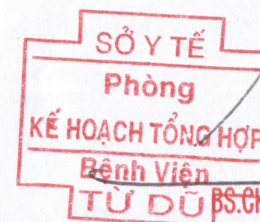 SỞ Y TẾ
Phòng
KẾ HOẠCH TỔNG HỢP
Bệnh Viện
TỪ DŨ
BS.CH